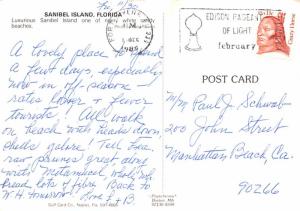 SANIBEL ISLAND, FLORIDA
Luxurious Sanibel Island one of many white sandy
beaches.
A lovely place to spend
a few days, especially
now on off-season
rates lower & fewer
tourists! All walk
on beach with heads down.
Shells galore! Tell
raw prunes great along
with Metamucil, whole
bread lots of fibre. Back to
Love
Gulf Card Co., Naples, Fla.
EDISON PAGEANT
OF LIGHT
february
Crazy Horse
POST CARD
M/m Paul J. Schwab
200 John Street
Manhattan Beach Ca.
90266